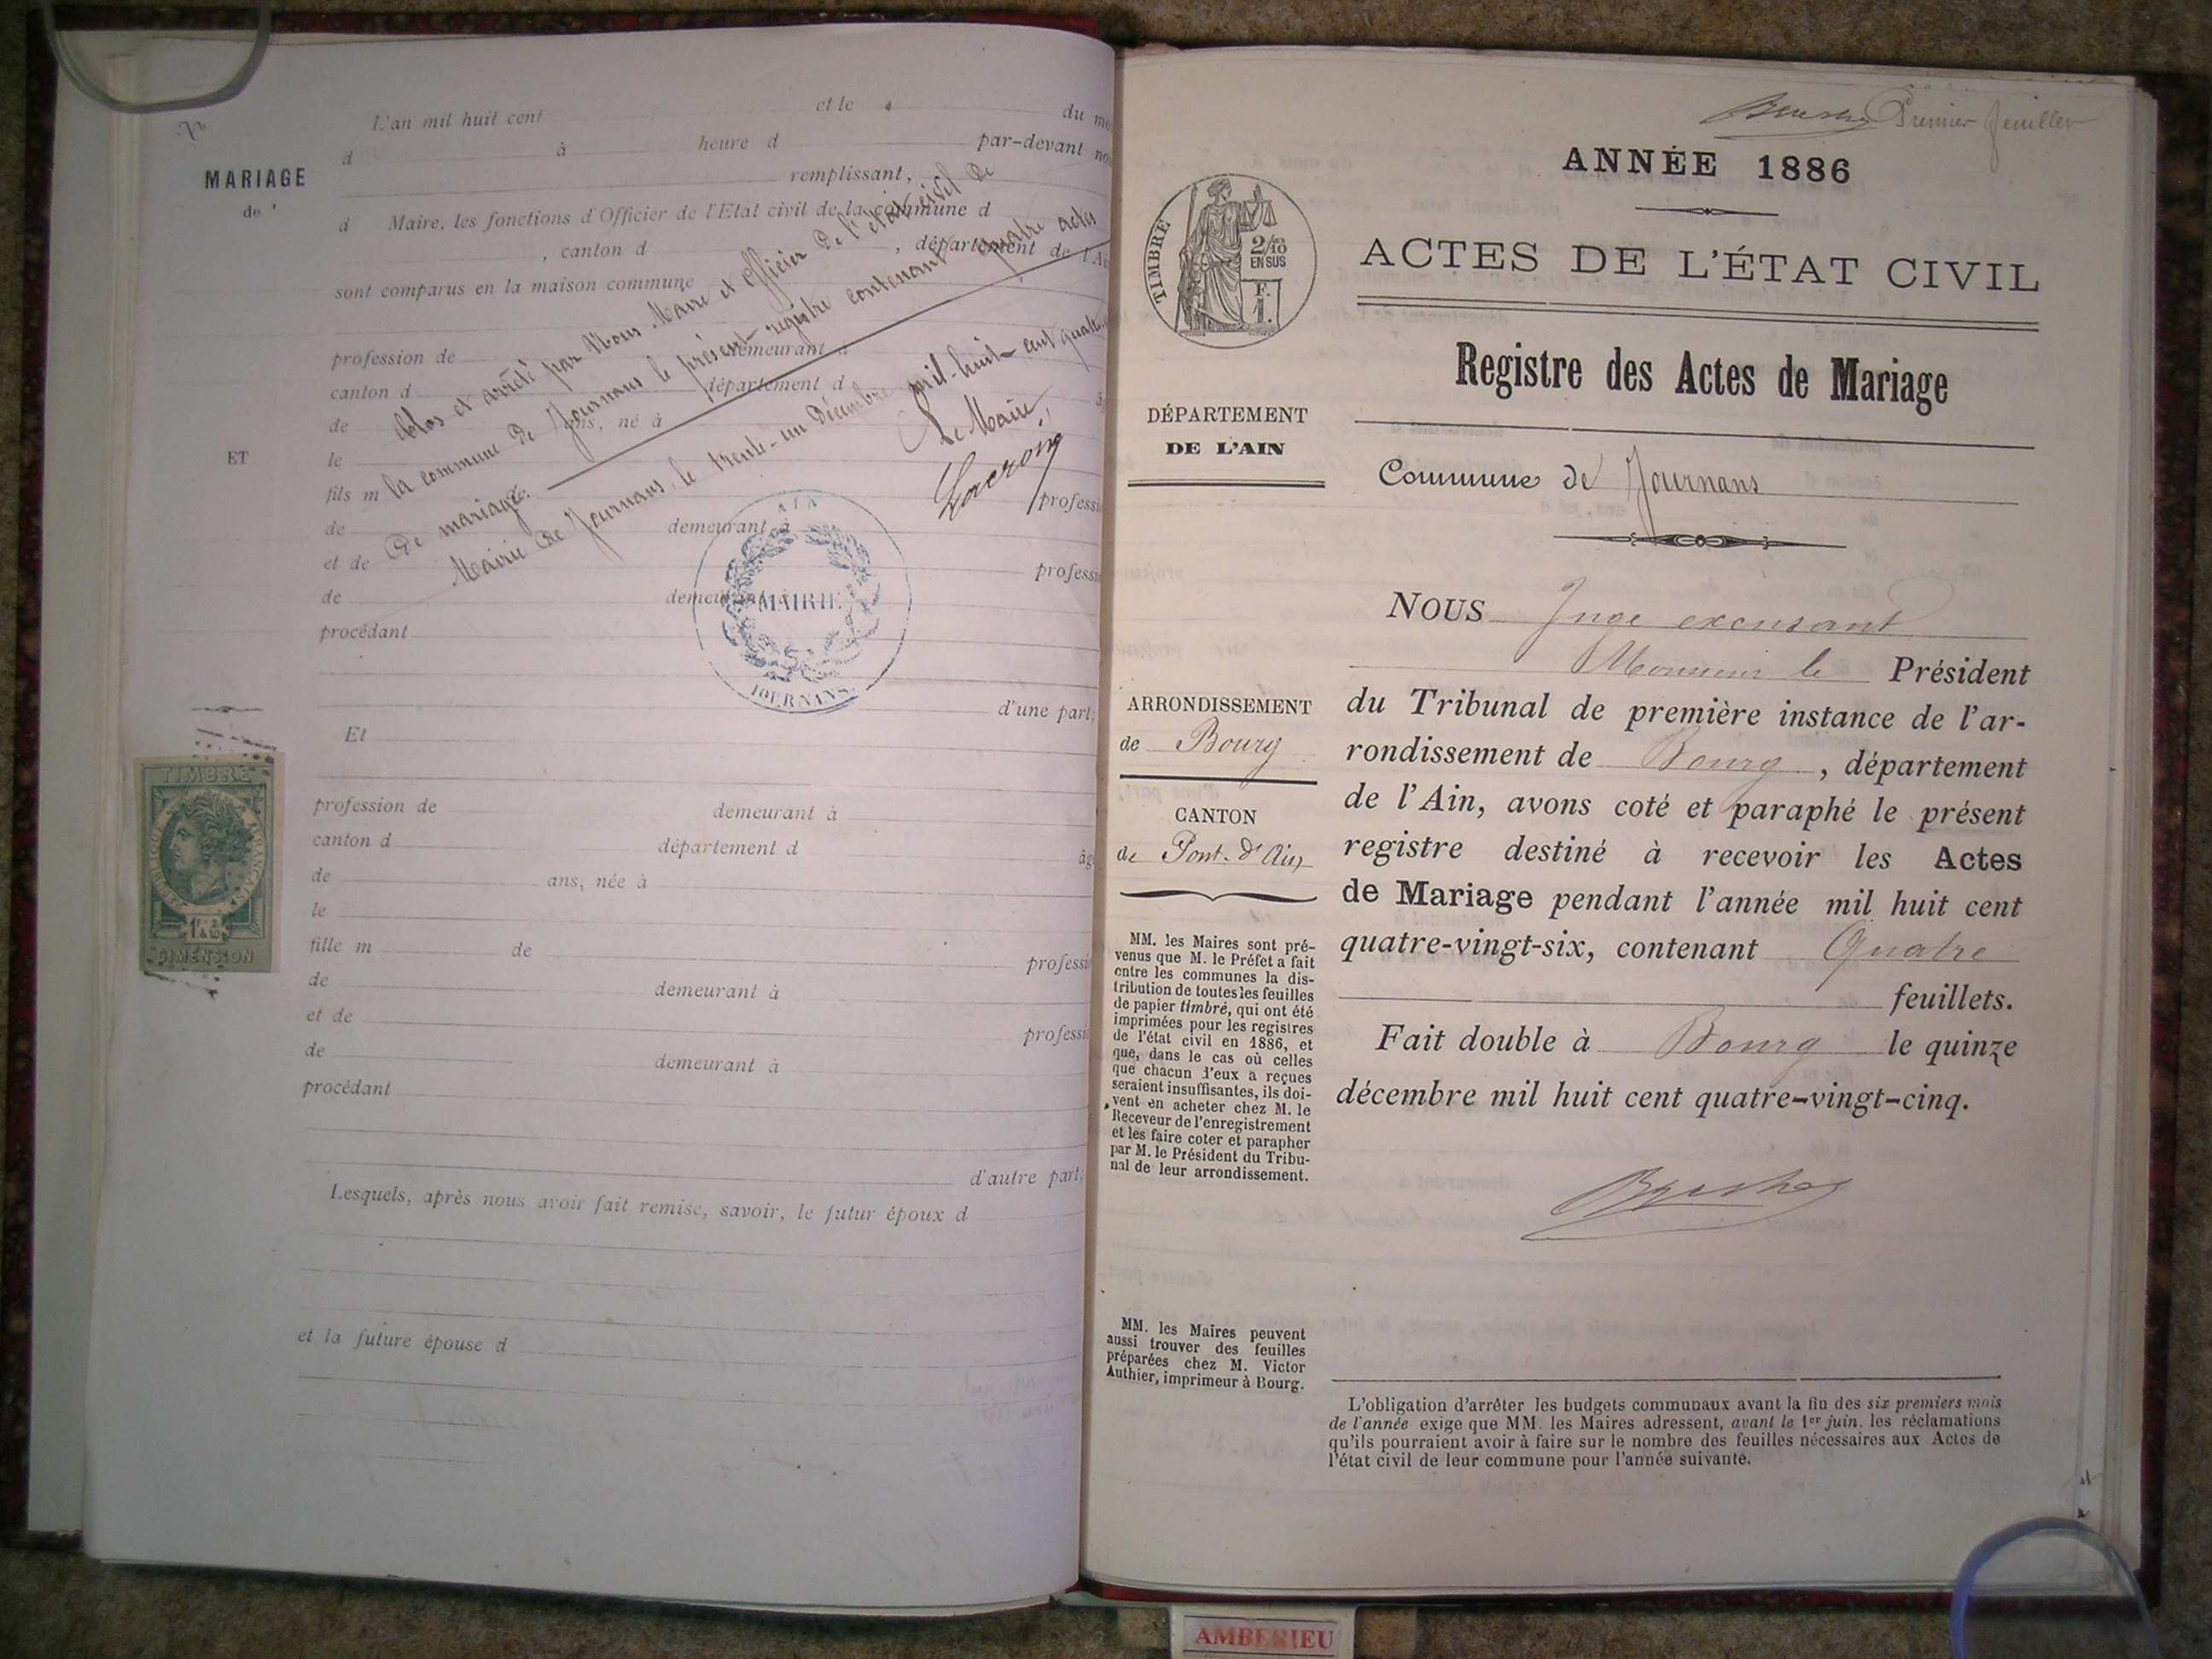 MARIAGE
de
ET
L'an mil huit cent et le du
d à heure d par-devant
remplissant,
d Maire, les fonctions d'Officier de l'Etat civil de la commune d
, canton d , département de l'
sont comparus en la maison commune
profession de demeurant à
canton d département d
de ans, né à
le
fils m de
de demeurant à
et de
de demeurant à
procédant
d'une part;
Clos et arrêté par Nous Maire et officier de l'état civil de
la commune de Journans le présent registre contenant quatre actes
de mariage.
Mairie de Journans, le trente-un décembre mil-huit-cent
Le Maire,
Lacroix
AIN
MAIRIE
JOURNANS
Et
profession de demeurant à
canton d département d
de ans, née à
le
fille m de
de demeurant à
et de
de demeurant à
procédant
d'autre part;
Lesquels, après nous avoir fait remise, savoir, le futur époux d
et la future épouse d
TIMBRE
DIMENSION
Premier feuillet
ANNÉE 1886
ACTES DE L'ÉTAT CIVIL
Registre des Actes de Mariage
Commune de Journans
TIMBRE
2/10
EN SUS
F.
1.
DÉPARTEMENT
DE L'AIN
ARRONDISSEMENT
de Bourg
CANTON
de Pont-d'Ain
MM. les Maires sont pré-
venus que M. le Préfet a fait
entre les communes la dis-
tribution de toutes les feuilles
de papier timbré, qui ont été
imprimées pour les registres
de l'état civil en 1886, et
que, dans le cas où celles
que chacun d'eux a reçues
seraient insuffisantes, ils doi-
vent en acheter chez M. le
Receveur de l'enregistrement
et les faire coter et parapher
par M. le Président du Tribu-
nal de leur arrondissement.
MM. les Maires peuvent
aussi trouver des feuilles
préparées chez M. Victor
Authier, imprimeur à Bourg.
NOUS Juge excusant
Monsieur le Président
du Tribunal de première instance de l'ar-
rondissement de Bourg, département
de l'Ain, avons coté et paraphé le présent
registre destiné à recevoir les Actes
de Mariage pendant l'année mil huit cent
quatre-vingt-six, contenant Quatre
feuillets.
Fait double à Bourg le quinze
décembre mil huit cent quatre-vingt-cinq.
L'obligation d'arrêter les budgets communaux avant la fin des six premiers mois
de l'année exige que MM. les Maires adressent, avant le 1er juin, les réclamations
qu'ils pourraient avoir à faire sur le nombre des feuilles nécessaires aux Actes de
l'état civil de leur commune pour l'année suivante.
AMBERIEU